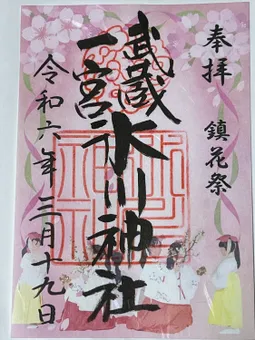 奉拝 鎮花祭
武蔵
一宮
氷川神社
令和六年三月十九日